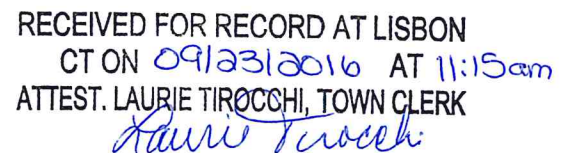 RECEIVED FOR RECORD AT LISBON
CT ON 09/23/2016 AT 11:15am
ATTEST. LAURIE TIROCCHI, TOWN CLERK
Laurie Tirocchi